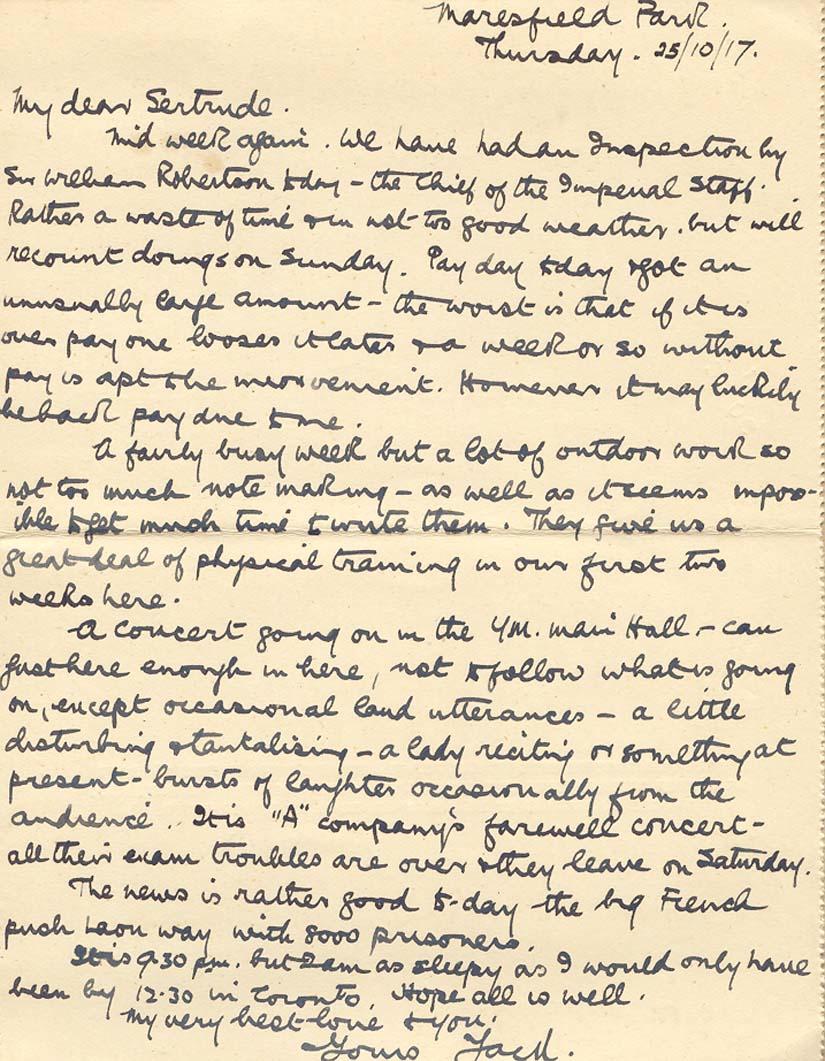 Maresfield Park.
Thursday. 25/10/17.
My dear Gertrude.
Mid week again. We have had an Inspection by
Sir William Robertson today - the Chief of the Imperial Staff.
Rather a waste of time & in not too good weather. but will
recount doings on Sunday. Pay day today & got an
unusually large amount - the worst is that if it is
over pay one looses it later & a week or so without
pay is apt to be
However it may luckily
be back pay due to me.
A fairly busy week but a lot of outdoor work so
not too much note making - as well as it seems impos-
ible to get much time to write them. They give us a
great deal of physical training in our first two
weeks here.
A concert going on in the Y.M. main Hall - can
just here enough in here, not to follow what is going
on, except occasional loud utterances - a little
disturbing & tantalising - a lady reciting or something at
present - bursts of laughter occasionally from the
audience. It is "A" company's farewell concert -
all their exam troubles are over & they leave on Saturday.
The news is rather good to-day - the big French
push Laon way with 8000 prisoners.
It is 9.30 pm. but I am as sleepy as I would only have
been by 12.30 in Toronto. Hope all is well.
My very best love to you.
Yours Jack.